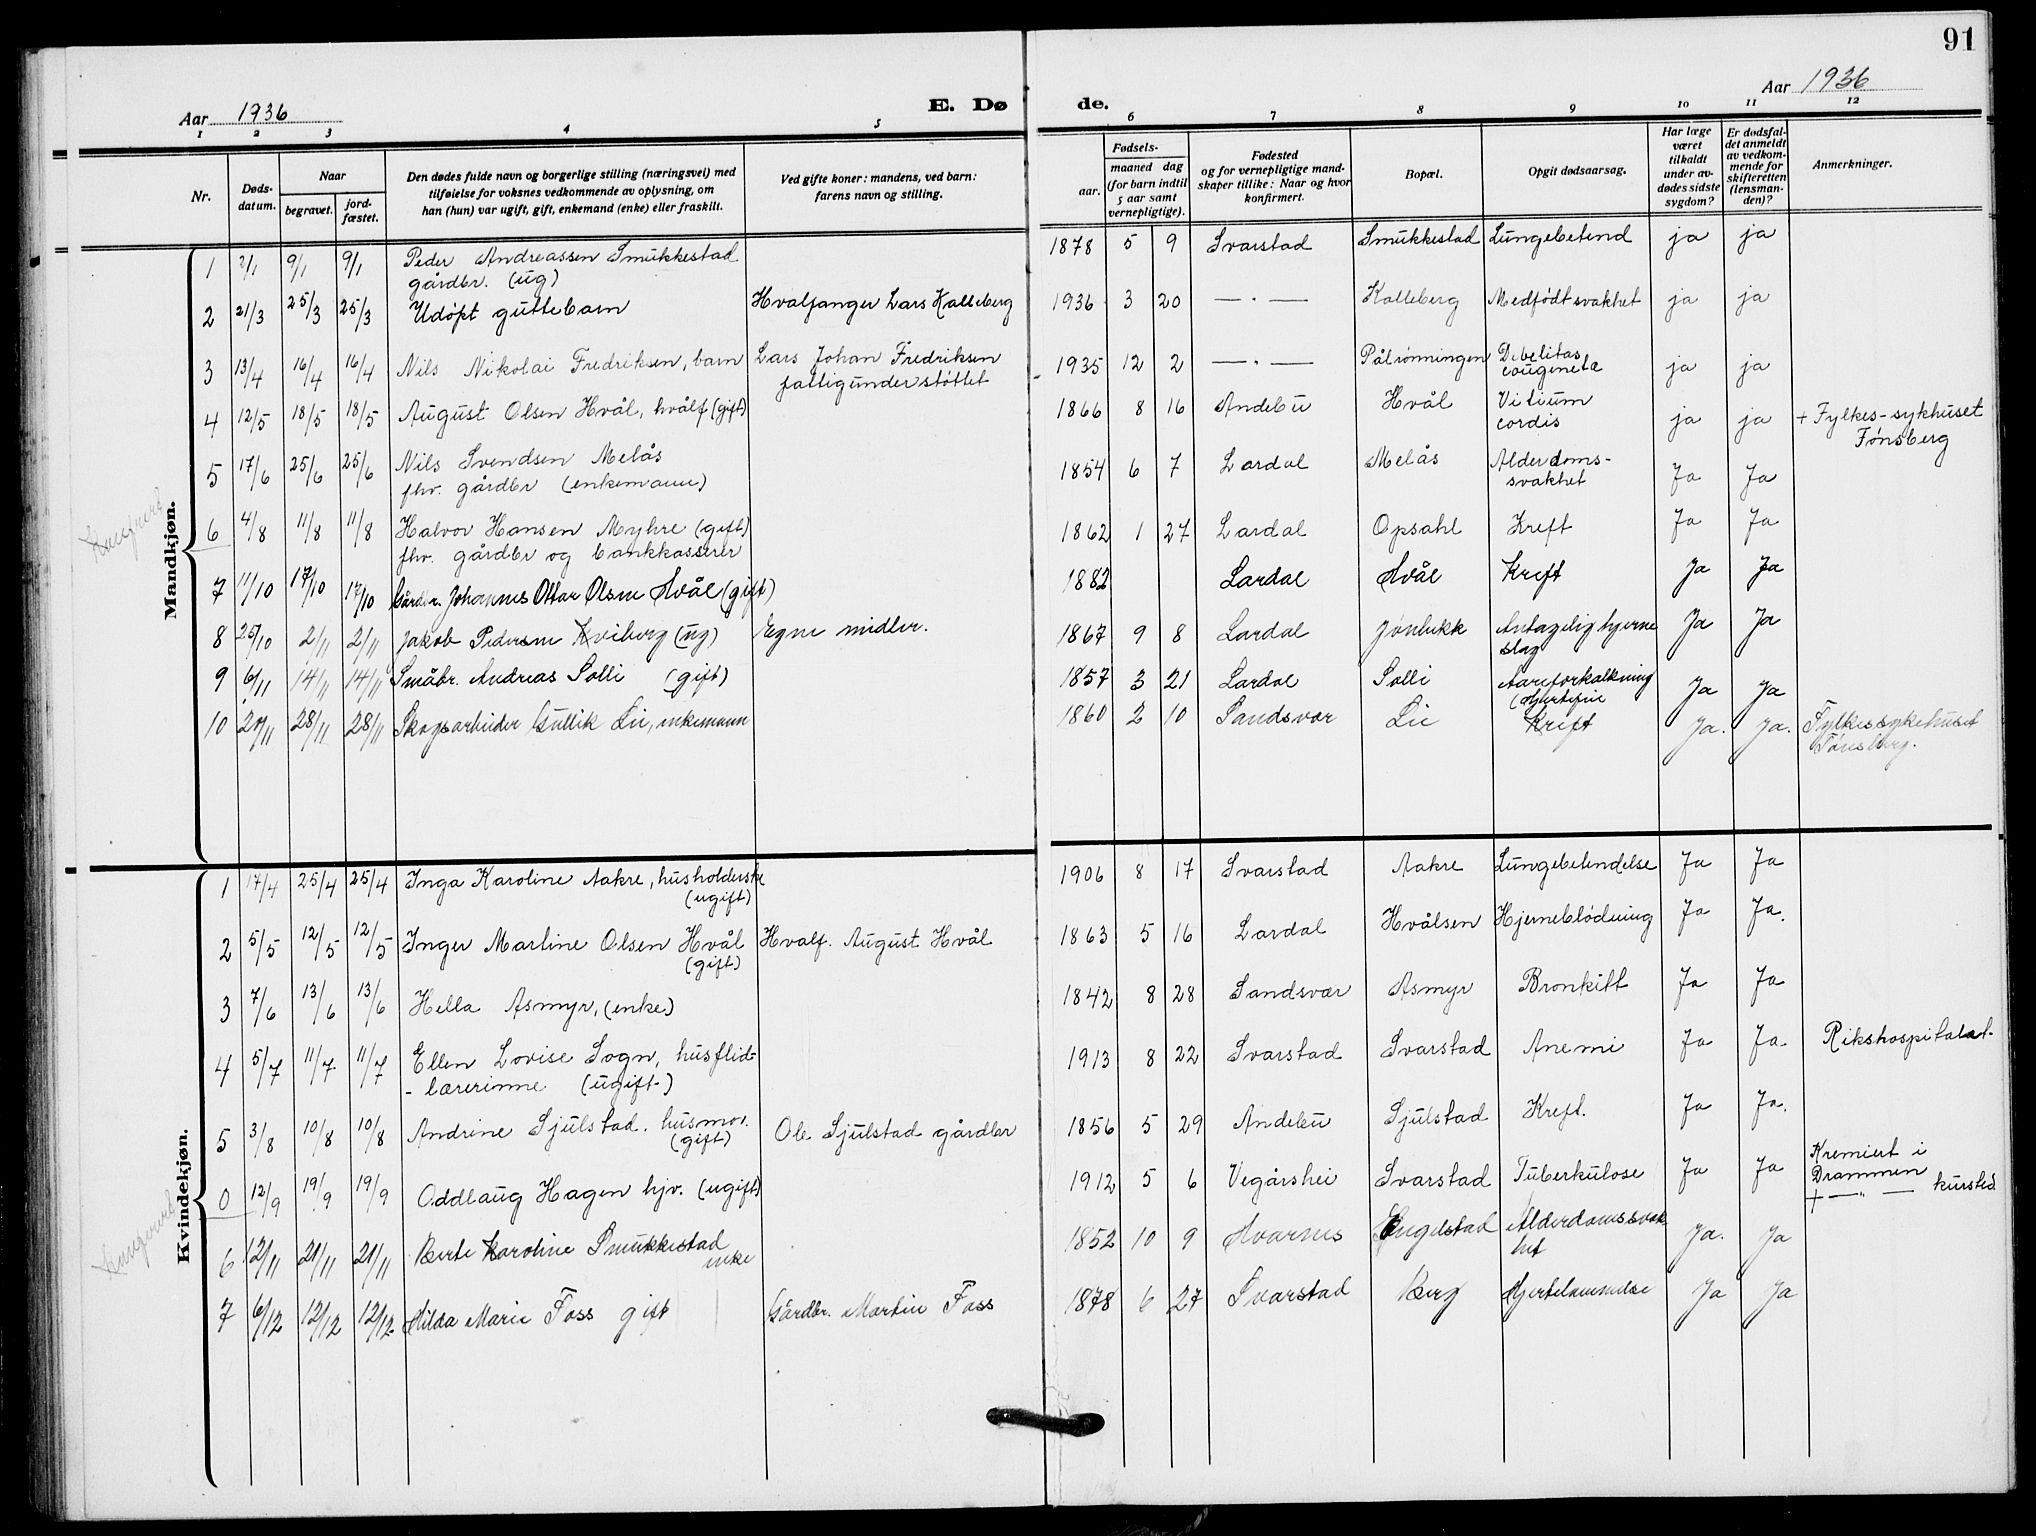 91
Aar 1936
E. Dø
de.
Aar 1936
1 2 3 4 5
6 7 8 9 10 11 12
Nr.
Døds-
datum.
Naar
begravet.
jord-
fæstet.
Den dødes fulde navn og borgerlige stilling (næringsvei) med
tilføielse for voksnes vedkommende av oplysning, om
han (hun) var ugift, gift, enkemand (enke) eller fraskilt.
Ved gifte koner: mandens, ved barn:
farens navn og stilling.
Fødsels-
aar.
maaned dag
(for barn indtil
5 aar samt
vernepligtige).
Fødested
og for vernepligtige mand-
skaper tillike: Naar og hvor
konfirmert.
Bopæl.
Opgit dødsaarsag.
Har læge
været
tilkaldt
under av-
dødes sidste
sygdom?
Er dødsfal-
det anmeldt
av vedkom-
mende for
skifteretten
(lensman-
den)?
Anmerkninger.
Mandkjøn.
1 2/1 9/1 9/1 Peder Andreassen Smukkestad 1878 5 9 Svarstad Smukkestad Lungebetend ja ja
gårdbr. (ug)
2 21/3 25/3 25/3 Udøpt guttebarn Hvalfanger Lars Kalleberg 1936 3 20 — " — Kalleberg Medfødt svakhet ja ja
3 13/4 16/4 16/4 Nils Nikolai Fredriksen, barn Lars Johan Fredriksen 1935 12 2 — " — Pålrønningen Debelitas ja ja
fattigunderstøttet cougeneta
4 12/5 18/5 18/5 August Olsen Hvål, hvålf (gift) 1866 8 16 Andebu Hvål Vitium ja ja + Fylkes-sykhuset
cordis Tønsberg
5 17/6 25/6 25/6 Nils Svendsen Melås 1854 6 7 Lardal Melås Alderdoms- Ja Ja
fhv. gårdbr (enkemann) svakhet
6 4/8 11/8 11/8 Halvor Hansen Myhre (gift) 1862 1 27 Lardal Opsahl Kreft Ja Ja
fhv. gårdbr og bankkasserer
7 11/10 17/10 17/10 Gårdbr. Johannes Ottar Olsen Hvål (gift) 1882 Lardal Hvål Kreft Ja Ja
8 25/10 2/11 2/11 Jakob Pedersen Kviberg (ug) Egne midler. 1867 9 8 Lardal Jønbekk Antagelig hjerne Ja Ja
slag
9 6/11 14/11 14/11 Småbr. Andreas Solli (gift) 1857 3 21 Lardal Solli Aareforkalkning Ja Ja
10 20/11 28/11 28/11 Skogsarbeider Gullik Lie, enkemann 1860 2 10 Sandsvær Lie Kreft Ja. Ja. Fylkessykehuset
Tønsberg.
Kvindekjøn.
1 17/4 25/4 25/4 Inga Karoline Aakre, husholderske 1906 8 17 Svarstad Aakre Lungebetendelse Ja Ja
(ugift)
2 5/5 12/5 12/5 Inger Martine Olsen Hvål Hvalf. August Hvål 1863 5 16 Lardal Hvålsen Hjerneblødning Ja Ja.
(gift)
3 7/6 13/6 13/6 Hella Asmyr, (enke) 1842 8 28 Sandsvær Asmyr Bronkitt Ja Ja
4 5/7 11/7 11/7 Ellen Lovise Sogn, husflid- 1913 8 22 Svarstad Svarstad Anemi Ja Ja. Rikshospitalet
- lærerinne (ugift)
5 3/8 10/8 10/8 Andrine Sjulstad. husmor. Ole Sjulstad gårdbr 1856 5 29 Andebu Sjulstad Kreft. Ja Ja.
(gift)
0 12/9 19/9 19/9 Oddlaug Hagen hjv. (ugift) 1912 5 6 Vegårshei Svarstad Tuberkulose Ja Ja Kremiert i
Drammen
+ — " — kursted
6 12/11 21/11 21/11 Berte Karoline Smukkestad 1852 10 9 Hvarnes Engelstad Alderdomssvak Ja. Ja
enke het
7 6/12 12/12 12/12 Hilda Marie Foss gift Gårdbr. Martin Foss 1878 6 27 Svarstad Berg Hjertelammelse Ja Ja